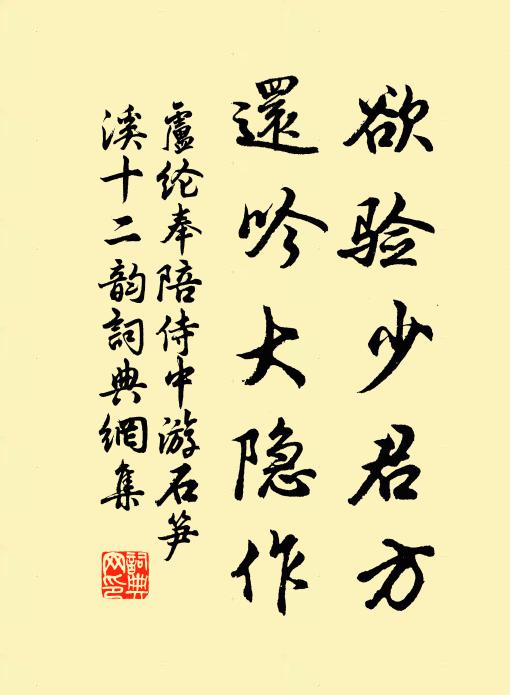 欲验少君方
還吟大隐作
盧纶奉陪侍中游石笋
溪十二韵詞典網集
詞典
网印